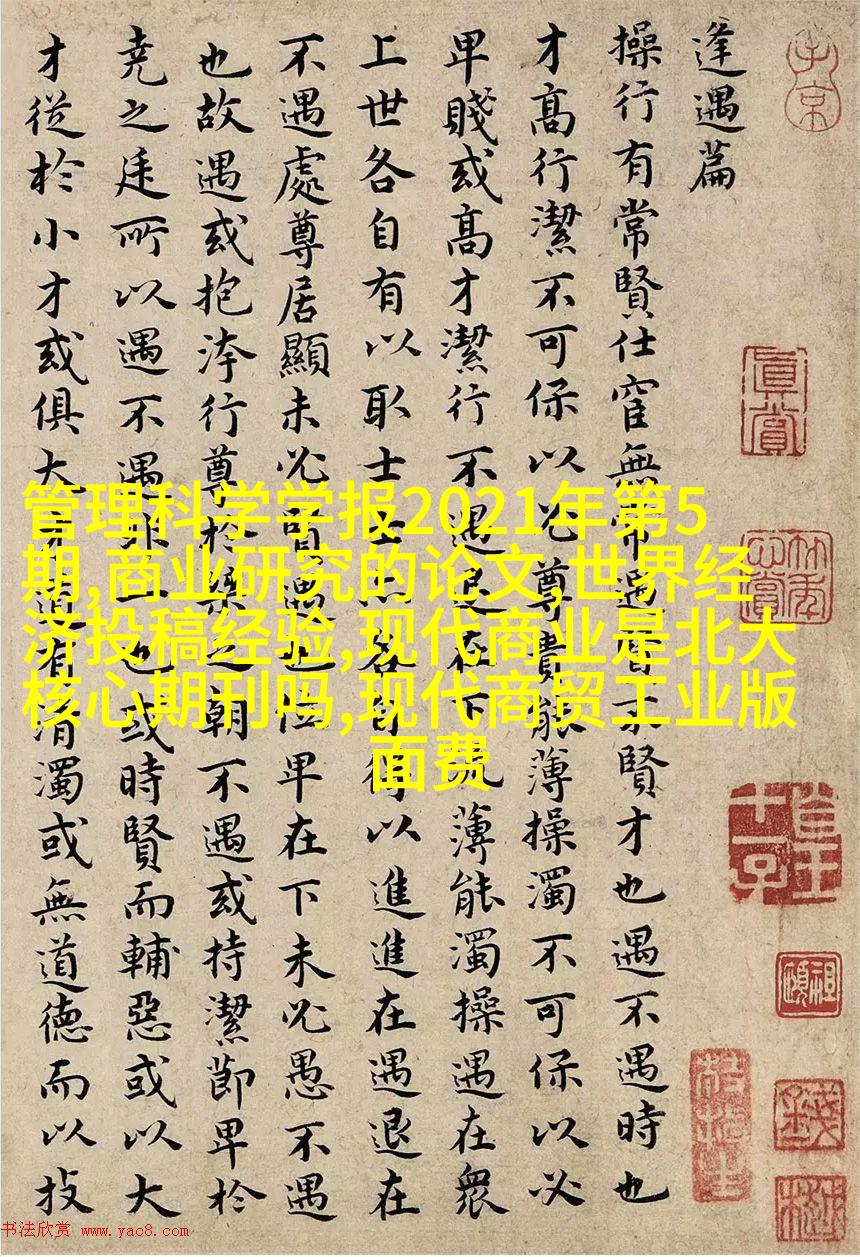 逢遇篇
操行有常賢仕宦無常遇賢不賢才也遇不遇時也
才高行潔不可保以必尊貴能薄操濁不可保以必
卑賤或高才潔行不遇退在下流薄能濁操遇在衆
上世各自有以取士士亦各自得以進進在遇退在
不遇處尊居顯未必賢遇也位卑在下未必愚不遇
也故遇或抱洿行尊於桀之朝不遇或持潔節卑於
堯之廷所以遇不遇非一也或時賢而輔惡或以大
才從於小才或俱大才道有清濁或無道德而以技
子京
眞賞
管理科学学报2021年第5
期,商业研究的论文,世界经
济投稿经验,现代商业是北大
核心期刊吗,现代商贸工业版
面费
书法欣赏 www.yac8.com